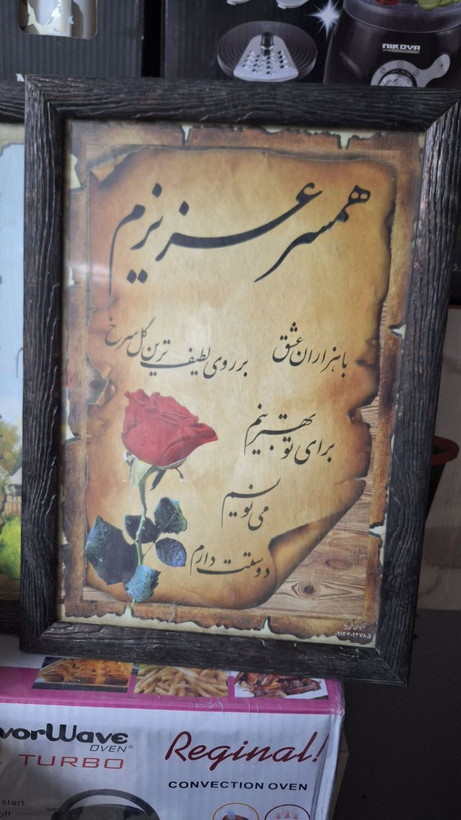 NIKOVA
همسر عزیزم
با هزاران عشق
بر روی لطیف ترین گل سرخ
برای تو بهترینم
می نویسم
دوستت دارم
vorWave
OVEN
TURBO
Reginal!
CONVECTION OVEN
start